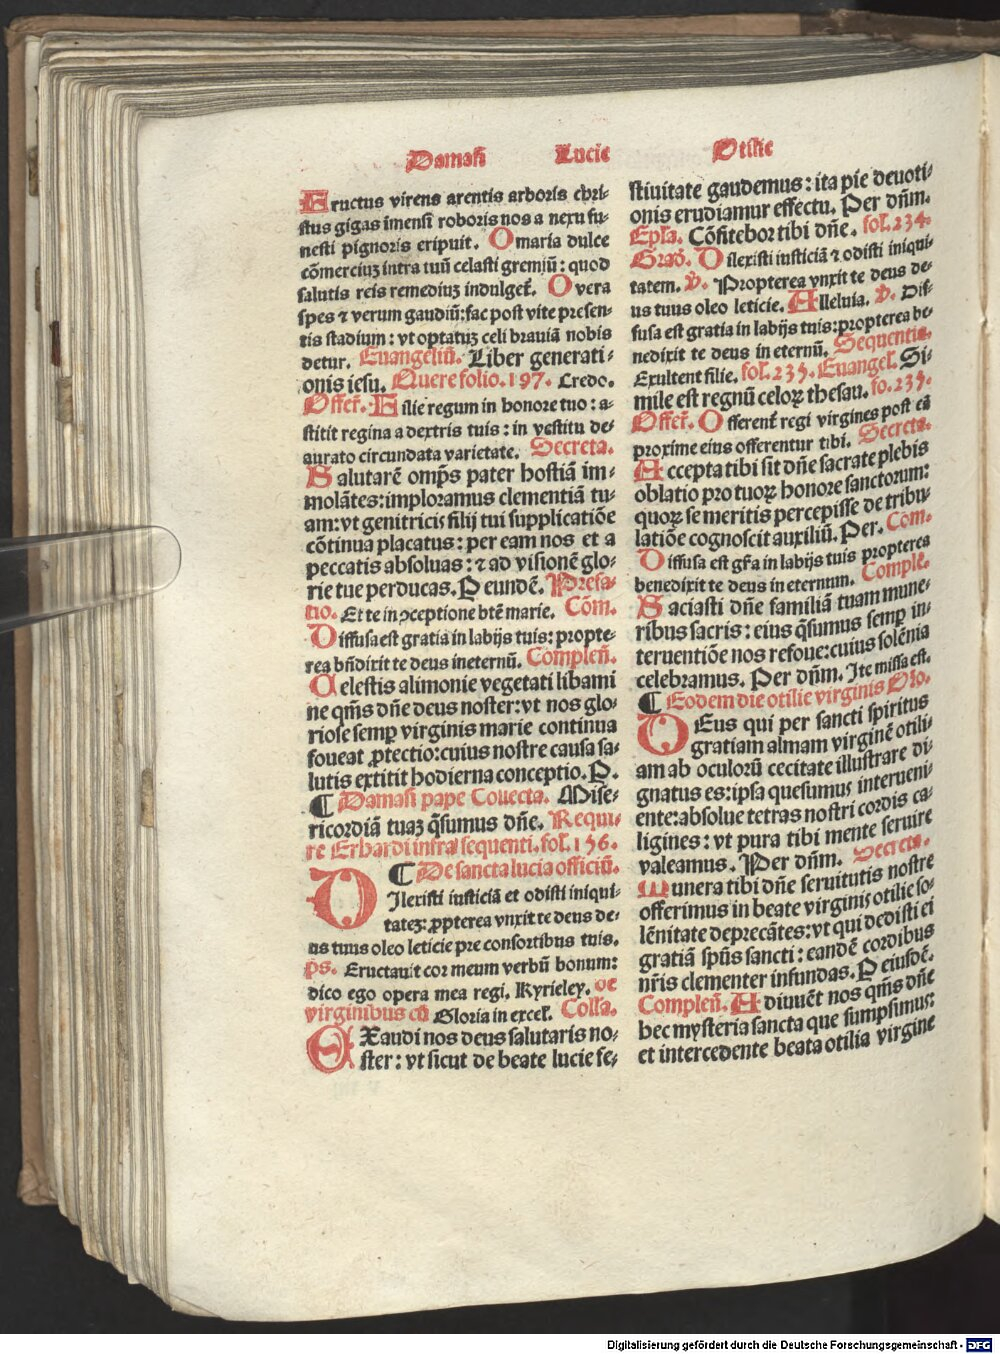 Damasi Lucie Otilie
Fructus virens arentis arboris chri-
stus gigas īmensi roboris nos a nexu fu-
nesti pignoris eripuit. O maria dulce
cōmerciuꝫ intra tuū celasti gremiū: quod
salutis reis remediuꝫ indulget̄. O vera
spes ⁊ verum gaudiū: fac post vite presen-
tis stadium: vt optatuꝫ celi brauiā nobis
detur. Euangeliū. Liber generati-
onis iesu. Quere folio. 197. Credo.
Offer̄. Filie regum in honore tuo: a-
stitit regina a dextris tuis: in vestitu de-
aurato circundata varietate. Secreta.
Salutarē omp̄s pater hostiā im-
molātes: imploramus clementiā tu-
am: vt genitricis filij tui supplicatiōe
cōtinua placatus: per eam nos et a
peccatis absoluas: ⁊ ad visionē glo-
rie tue perducas. P eundē. Prefa-
tio. Et te in ꝯceptione btē marie. Cōm.
Diffusa est gratia in labijs tuis: propte-
rea bn̄dixit te deus ineternū. Complen̄.
Celestis alimonie vegetati libami
ne qm̄s dn̄e deus noster: vt nos glo-
riose semꝑ virginis marie continua
foueat ꝓtectio: cuius nostre causa sa-
lutis extitit hodierna conceptio. P.
¶ Damasi pape Collecta. Mise-
ricordiā tuaꝫ q̄sumus dn̄e. Requi-
re Erhardi infra sequenti. fol. 156.
¶ De sancta lucia officiū.
Dilexisti iusticiā et odisti iniqui-
tateꝫ: ꝓpterea vnxit te deus de-
us tuus oleo leticie pre consortibus tuis.
ps. Eructauit cor meum verbū bonum:
dico ego opera mea regi. Kyrieley. de
virginibus cū Gloria in excel̄. Colla.
Exaudi nos deus salutaris no-
ster: vt sicut de beate lucie fe-
stiuitate gaudemus: ita pie deuoti-
onis erudiamur effectu. Per dn̄m.
Ep̄la. Cōfitebor tibi dn̄e. fol. 234.
Grad̄. Dilexisti iusticiā ⁊ odisti iniqui-
tatem. v̄. Propterea vnxit te deus de-
us tuus oleo leticie. Alleluia. v̄. Dif-
fusa est gratia in labijs tuis: propterea be-
nedixit te deus in eternū. Sequentia.
Exultent filie. fol. 235. Euangel. Si-
mile est regnū celoꝝ thesau. fo. 235.
Offer̄. Offerent̄ regi virgines post eā
proxime eius offerentur tibi. Secreta.
Accepta tibi sit dn̄e sacrate plebis
oblatio pro tuoꝝ honore sanctorum:
quoꝝ se meritis percepisse de tribu-
latiōe cognoscit auxiliū. Per. Com.
Diffusa est gr̄a in labijs tuis propterea
benedixit te deus in eternum. Complē.
Saciasti dn̄e familiā tuam mune-
ribus sacris: eius q̄sumus semꝑ in-
teruentiōe nos refoue: cuius solēnia
celebramus. Per dn̄m. Ite missa est.
¶ Eodem die otilie virginis Oīo.
Deus qui per sancti spiritus
gratiam almam virginē otili-
am ab oculorū cecitate illustrare di-
gnatus es: ipsa quesumus interueni-
ente: absolue tetras nostri cordis ca-
ligines: vt pura tibi mente seruire
valeamus. Per dn̄m. Secreta.
Munera tibi dn̄e seruitutis nostre
offerimus in beate virginis otilie so-
lēnitate deprecātes: vt qui dedisti ei
gratiā sp̄us sancti: eandē cordibus
nr̄is clementer infundas. P eiusdē.
Complen̄. Adiuuēt nos qm̄s dn̄e
hec mysteria sancta que sumpsimus:
et intercedente beata otilia virgine
Digitalisierung gefördert durch die Deutsche Forschungsgemeinschaft - DFG